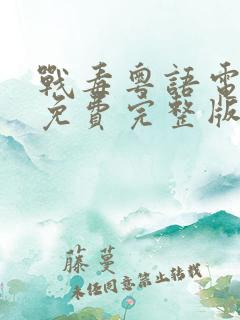 戰毒粵語電
免費完整版
藤蔓
未經同意禁止轉載